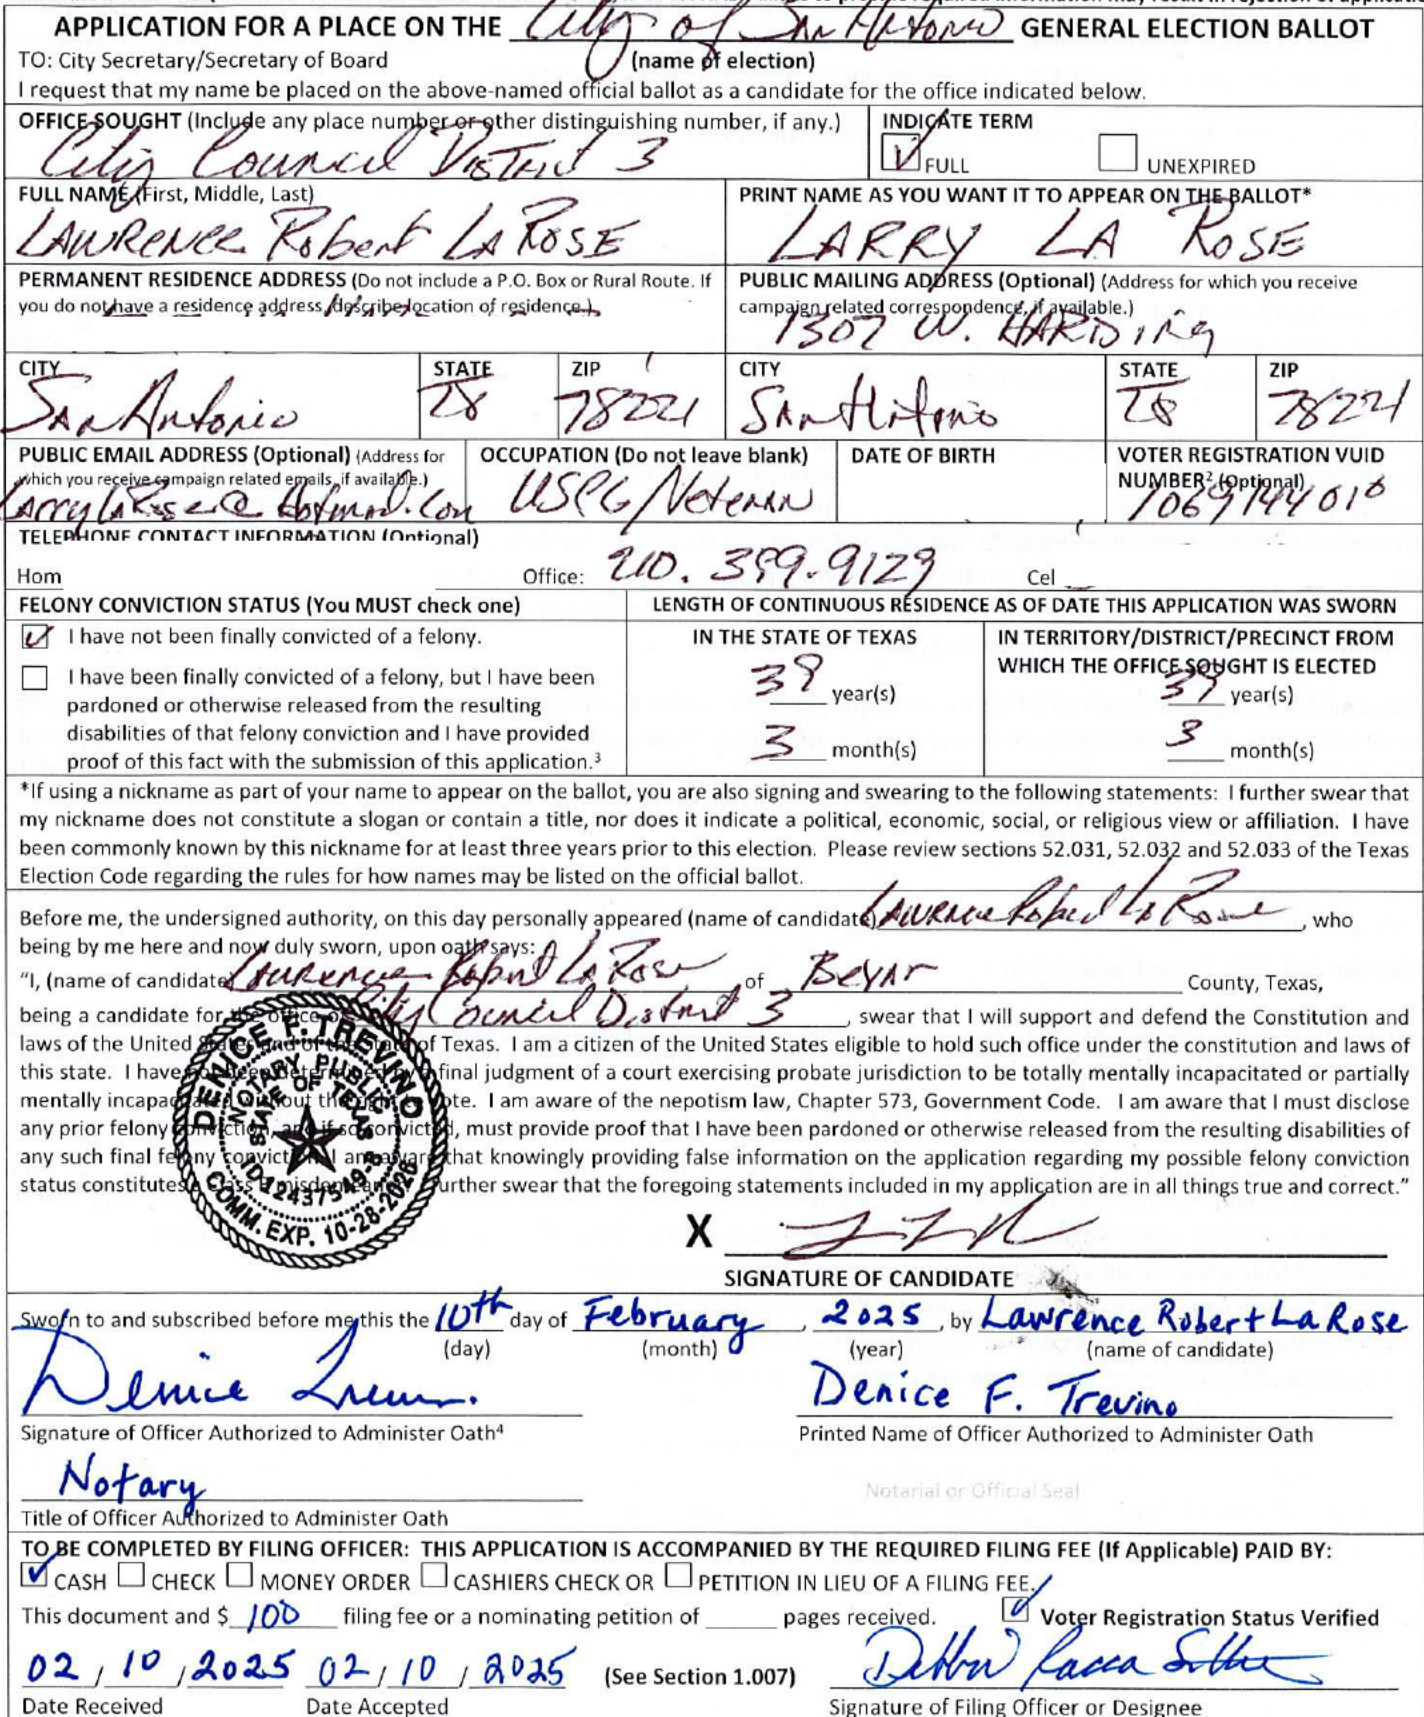 APPLICATION FOR A PLACE ON THE City of San Antonio GENERAL ELECTION BALLOT
TO: City Secretary/Secretary of Board (name of election)
I request that my name be placed on the above-named official ballot as a candidate for the office indicated below.
OFFICE SOUGHT (Include any place number or other distinguishing number, if any.) INDICATE TERM
City Council District 3 FULL UNEXPIRED
FULL NAME (First, Middle, Last) PRINT NAME AS YOU WANT IT TO APPEAR ON THE BALLOT*
LAWRENCE Robert LA ROSE LARRY LA ROSE
PERMANENT RESIDENCE ADDRESS (Do not include a P.O. Box or Rural Route. If PUBLIC MAILING ADDRESS (Optional) (Address for which you receive
you do not have a residence address, describe location of residence.) campaign related correspondence, if available.)
1307 W. HARDING
CITY STATE ZIP CITY STATE ZIP
San Antonio TX 78221 San Antonio TX 78221
PUBLIC EMAIL ADDRESS (Optional) (Address for OCCUPATION (Do not leave blank) DATE OF BIRTH VOTER REGISTRATION VUID
which you receive campaign related emails, if available.) NUMBER² (Optional)
LarryLaRose@Hotmail.com /Veteran 1069144010
TELEPHONE CONTACT INFORMATION (Optional)
Hom Office: 210.399.9129 Cel
FELONY CONVICTION STATUS (You MUST check one) LENGTH OF CONTINUOUS RESIDENCE AS OF DATE THIS APPLICATION WAS SWORN
I have not been finally convicted of a felony. IN THE STATE OF TEXAS IN TERRITORY/DISTRICT/PRECINCT FROM
WHICH THE OFFICE SOUGHT IS ELECTED
I have been finally convicted of a felony, but I have been
pardoned or otherwise released from the resulting 39 year(s) 39 year(s)
disabilities of that felony conviction and I have provided
proof of this fact with the submission of this application.³ 3 month(s) 3 month(s)
*If using a nickname as part of your name to appear on the ballot, you are also signing and swearing to the following statements: I further swear that
my nickname does not constitute a slogan or contain a title, nor does it indicate a political, economic, social, or religious view or affiliation. I have
been commonly known by this nickname for at least three years prior to this election. Please review sections 52.031, 52.032 and 52.033 of the Texas
Election Code regarding the rules for how names may be listed on the official ballot.
Before me, the undersigned authority, on this day personally appeared (name of candidate) Lawrence Robert La Rose, who
being by me here and now duly sworn, upon oath says:
"I, (name of candidate) Lawrence Robert La Rose of Bexar County, Texas,
being a candidate for the office of City Council District 3, swear that I will support and defend the Constitution and
laws of the United States and of the State of Texas. I am a citizen of the United States eligible to hold such office under the constitution and laws of
this state. I have not been determined by a final judgment of a court exercising probate jurisdiction to be totally mentally incapacitated or partially
mentally incapacitated without the right to vote. I am aware of the nepotism law, Chapter 573, Government Code. I am aware that I must disclose
any prior felony conviction, and if so convicted, must provide proof that I have been pardoned or otherwise released from the resulting disabilities of
any such final felony conviction. I am aware that knowingly providing false information on the application regarding my possible felony conviction
status constitutes a Class B misdemeanor. I further swear that the foregoing statements included in my application are in all things true and correct."
DENICE F. TREVINO
NOTARY PUBLIC
STATE OF TEXAS
COMM. EXP. 10-28-2028
X
SIGNATURE OF CANDIDATE
Sworn to and subscribed before me this the 10th day of February, 2025, by Lawrence Robert La Rose
(day) (month) (year) (name of candidate)
Denice Trevino Denice F. Trevino
Signature of Officer Authorized to Administer Oath⁴ Printed Name of Officer Authorized to Administer Oath
Notary Notarial or Official Seal
Title of Officer Authorized to Administer Oath
TO BE COMPLETED BY FILING OFFICER: THIS APPLICATION IS ACCOMPANIED BY THE REQUIRED FILING FEE (If Applicable) PAID BY:
CASH CHECK MONEY ORDER CASHIERS CHECK OR PETITION IN LIEU OF A FILING FEE.
This document and $ 100 filing fee or a nominating petition of pages received. Voter Registration Status Verified
02/10/2025 02/10/2025 (See Section 1.007)
Date Received Date Accepted Signature of Filing Officer or Designee